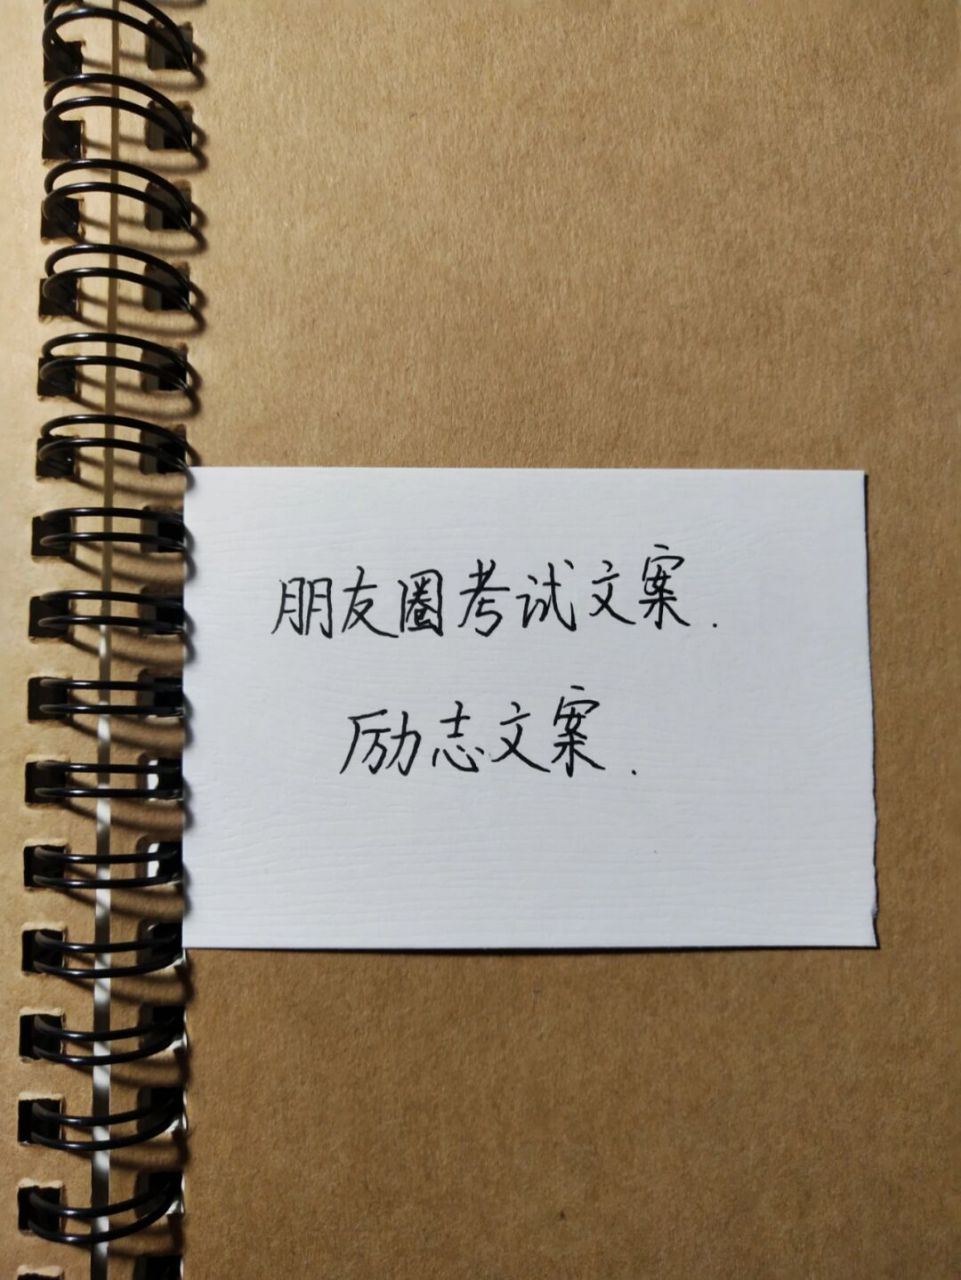 朋友圈考试文案.
励志文案.